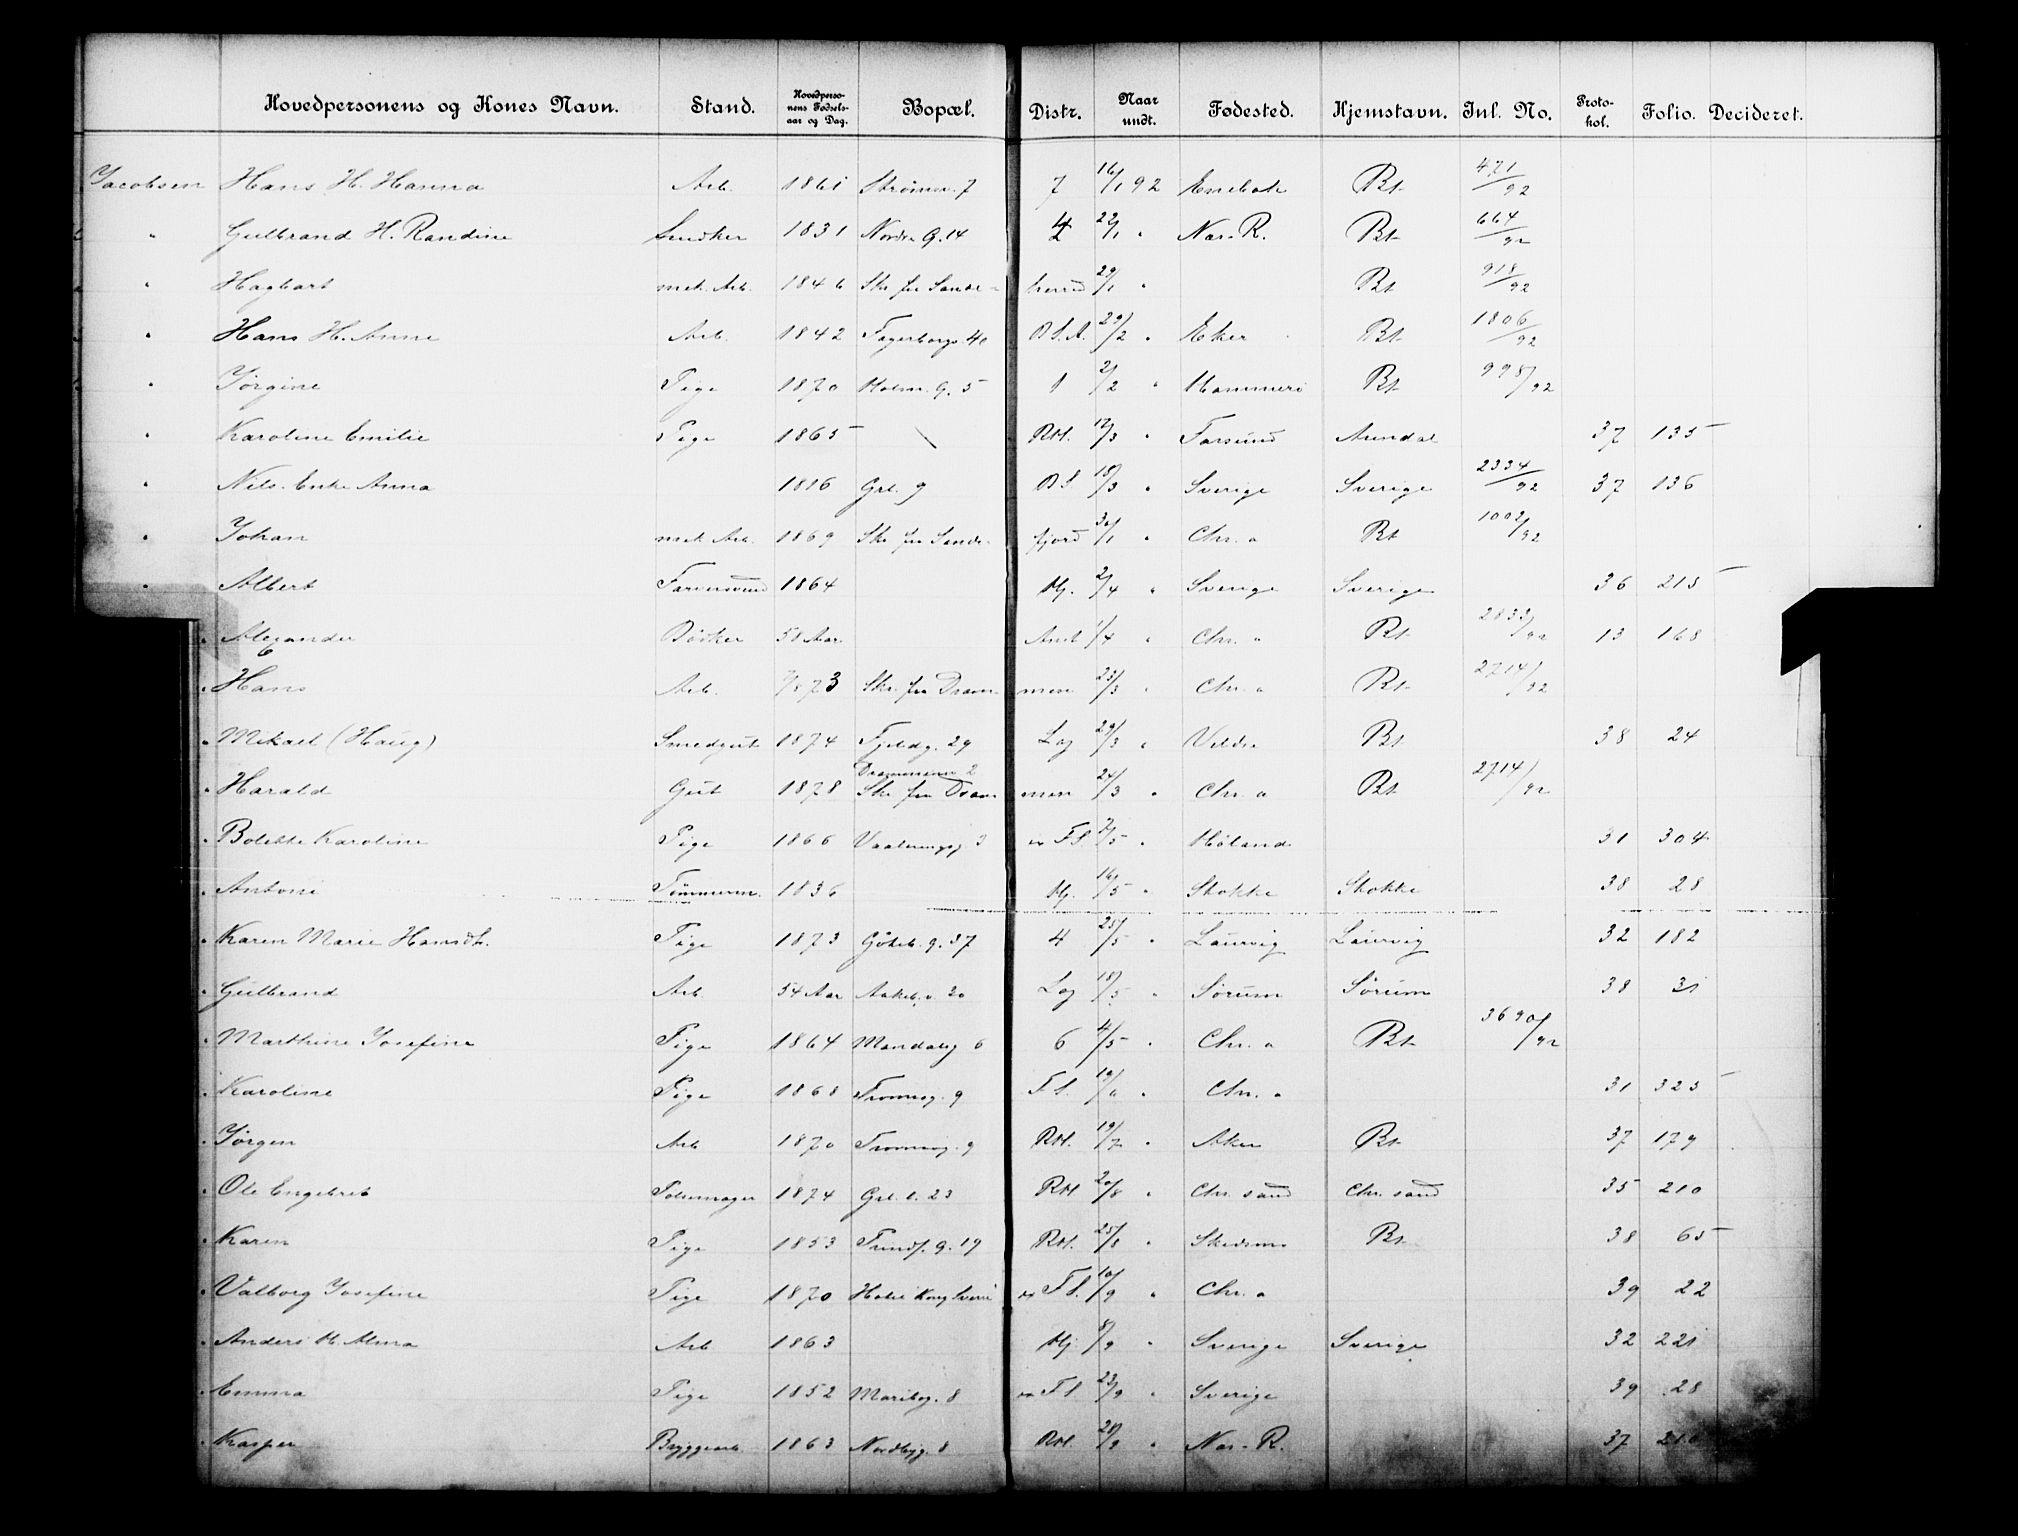 Hovedpersonens og Kones Navn. Stand. Hovedperso-nens Fødsels-aar og Dag. Bopæl. Distr. Naar undt. Fødested. Hjemstavn. Inl. No. Proto-kol. Folio. Decideret.
Jacobsen Hans H. Hanna Arb. 1861 Strømsv. 7 7 16/1 92 Enebak Bt. 471/92
" Gulbrand H. Randine Snedker 1831 Nordre G. 14 22/1 " Nes. R. Bt. 664/92
" Hagbart mek. Arb. 1846 Skr. fra Sande- herred 29/1 " Bt. 918/92
" Hans H. Anne Arb. 1842 Fagerborgg 40 29/2 " Eker Bt. 1806/92
" Jørgine Pige 1870 Holm. G. 5 1 2/2 " Hammerø Bt. 998/92
" Karoline Emilie Pige 1865 RH. 12/3 " Farsund Arendal 37 135
" Nils. Enke Anna 1816 Grl. 9 18/3 " Sverige Sverige 2334/92 37 136
" Johan mek. Arb. 1869 Skr. fra Sande- fjord 30/1 " Chr. a Bt. 1002/92
" Albert Farversvend 1864 Hj. 2/4 " Sverige Sverige 36 215
" Alexander Bødker 58 Aar 1/4 " Chr. a Bt. 2833/92 13 168
" Hans Arb. 7/8 73 Skr. fra Dram- men 23/3 " Chr. a Bt. 2714/92
" Mikael (Haug) Smedgut 1874 Fjeldg. 29 Lag 29/3 " Veldre Bt. 38 24
Drammensv 2
" Harald Gut 1878 Skr. fra Dram- men 24/3 " Chr. a Bt. 2714/92
" Bolette Karoline Pige 1866 Vaalerengg 3 Fl. 7/5 " Høland 31 304
" Antoni Tømmerm. 1836 Hj. 16/5 " Stokke Stokke 38 28
" Karen Marie Hansdt. Pige 1873 Gøteb. g. 37 4 25/5 " Laurvig Laurvig 32 182
" Gulbrand Arb. 54 Aar Akeb. v. 20 Lag 18/5 " Sørum Sørum 38 31
" Marthine Josefine Pige 1864 Mandalsg 6 6 4/5 " Chr. a Bt. 3690/92
" Karoline Pige 1868 Tromsøg. 9 Fl. " Chr. a 31 325
" Jørgen Arb 1870 Tromsøg. 9 RH. 19/7 " Aker Bt. 37 179
" Ole Engebret Pølsemager 1874 Grl. l. 23 RH. 20/8 " Chr. sand Chr. sand 35 210
" Karen Pige 1853 Trondh. g. 19 RH. 25/8 " Skedsmo Bt. 38 65
" Valborg Josefine Pige 1870 Hotel Kong Sverre Fl. 10/9 " Chr. a 39 22
" Anders H. Alma Arb 1863 Hj. 8/9 " Sverige Sverige 32 221
" Emma Pige 1852 Maribog. 8 Fl. 23/9 " Sverige 39 28
" Kasper Bryggearb. 1863 Nordbyg. 8 RH. 28/9 " Nes. R. 37